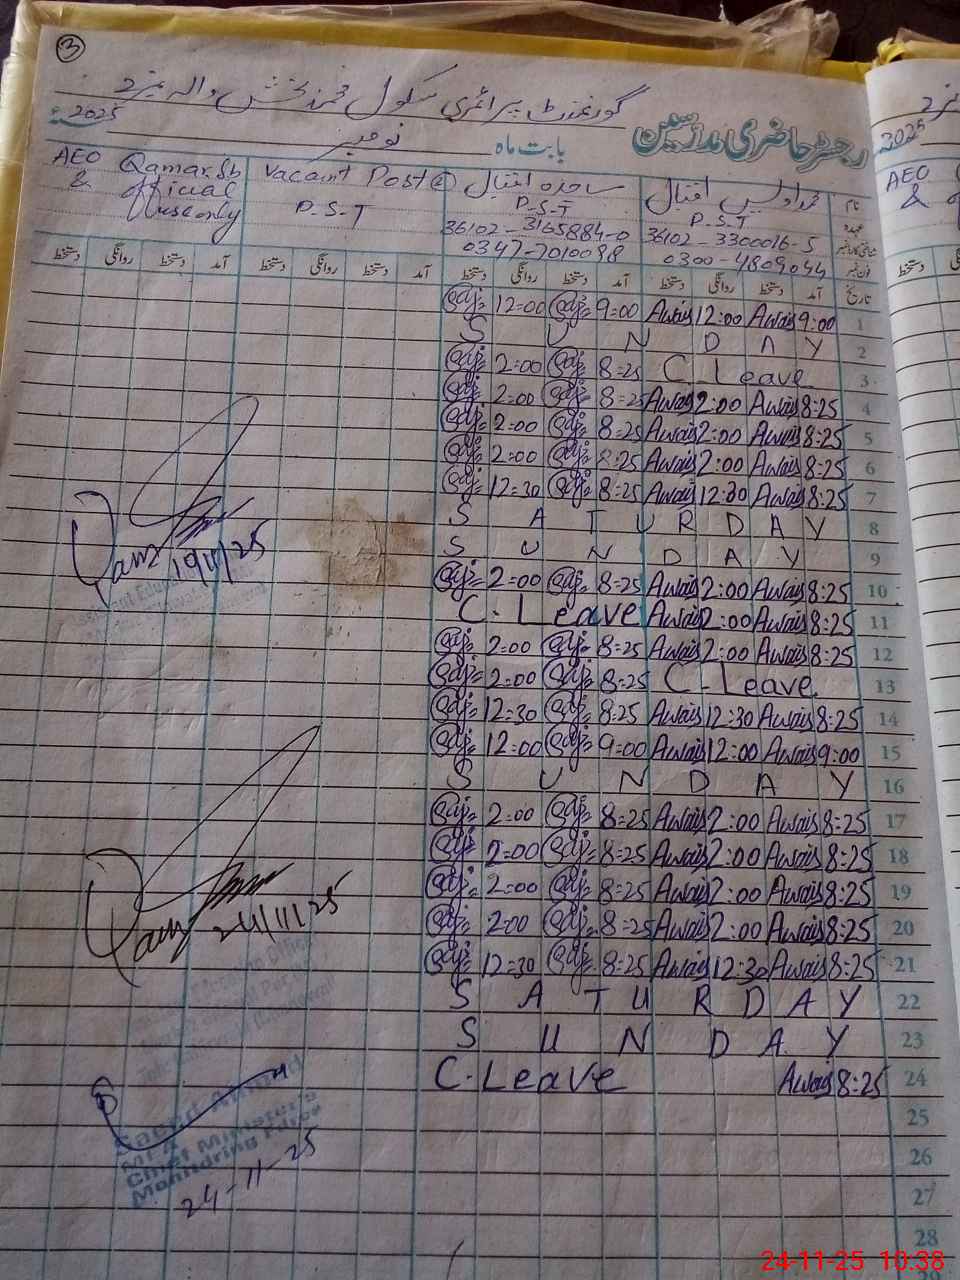 3
گورنمنٹ پرائمری سکول محمد بخش والہ نمبر 2
رجسٹر حاضری مدرسین
بابت ماہ نومبر 2025ء
نام محمد اویس اقبال ساجدہ اقبال Vacant Post AEO Qamar Sb
عہدہ P.S.T P.S.T P.S.T & official use only
36102-3300016-5 36102-3165884-0
0300-4809044 0347-7010098
تاریخ آمد دستخط روانگی دستخط آمد دستخط روانگی دستخط آمد دستخط روانگی دستخط آمد دستخط روانگی دستخط
12=00 9=00 Awais 12:00 Awais 9:00 1
S U N D A Y 2
2=00 8=25 C Leave 3
2=00 8=25 Awais 2:00 Awais 8:25 4
2=00 8=25 Awais 2:00 Awais 8:25 5
2=00 8=25 Awais 2:00 Awais 8:25 6
12=30 8=25 Awais 12:30 Awais 8:25 7
S A T U R D A Y 8
S U N D A Y 9
2=00 8=25 Awais 2:00 Awais 8:25 10
C. Leave Awais 2:00 Awais 8:25 11
2=00 8=25 Awais 2:00 Awais 8:25 12
2=00 8=25 C-Leave 13
12=30 8=25 Awais 12:30 Awais 8:25 14
12=00 9=00 Awais 12:00 Awais 9:00 15
S U N D A Y 16
2=00 8=25 Awais 2:00 Awais 8:25 17
2=00 8=25 Awais 2:00 Awais 8:25 18
2=00 8=25 Awais 2:00 Awais 8:25 19
2=00 8=25 Awais 2:00 Awais 8:25 20
12=30 8=25 Awais 12:30 Awais 8:25 21
S A T U R D A Y 22
S U N D A Y 23
C.Leave Awais 8:25 24
25
26
27
28
Qamar 19/11/25
Qamar 24/11/25
Saeed Ahmad
MEA
Chief Minister's
Monitoring Force
24-11-25
2025
AEO
&
دستخط
24-11-25 10:38